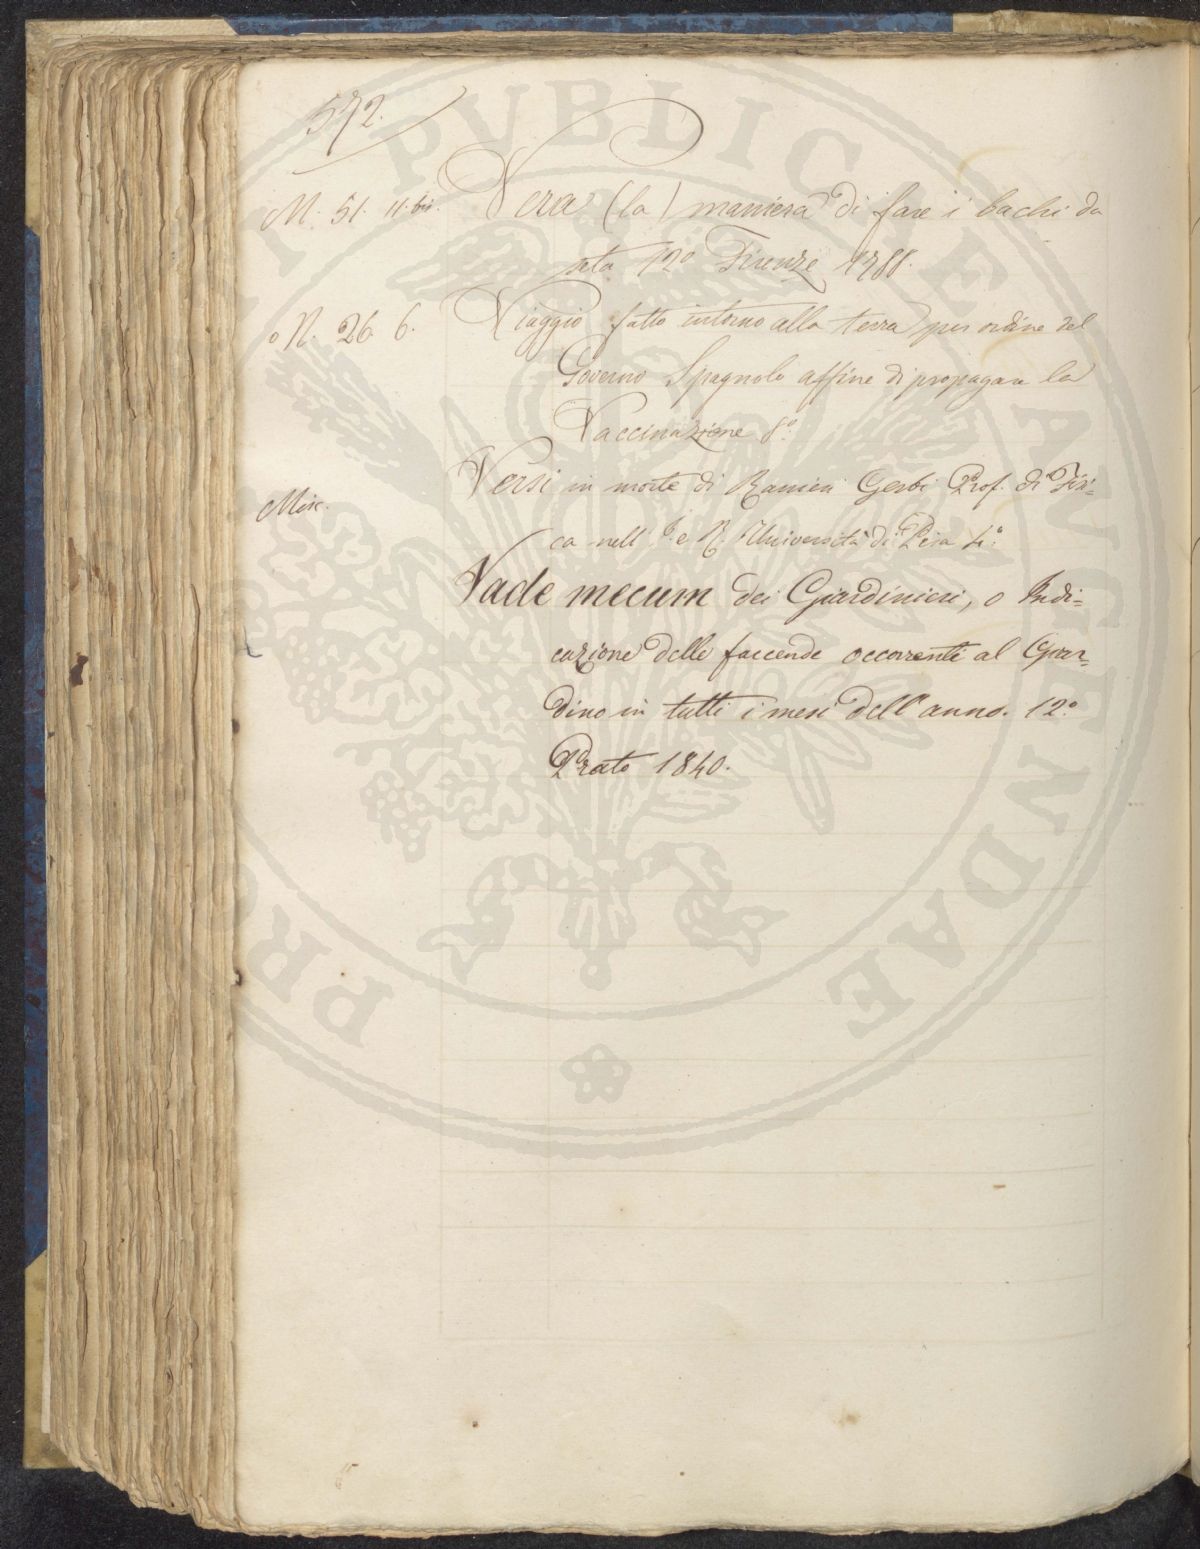 572.
M. 51. 11. bis. Vera (la) maniera di fare i bachi da
seta 12º Firenze 1788.
o N. 26 6. Viaggio fatto intorno alla terra per ordine del
Governo Spagnolo affine di propagare la
Vaccinazione 8º
Misc. Versi in morte di Ranieri Gerbi Prof. di Fisi-
ca nell' I. e R. Università di Pisa 4º.
Vade mecum dei Giardinieri, o Indi=
cazione delle faccende occorrenti al Giar=
dino in tutti i mesi dell'anno. 12.º
Prato 1840.
PROSPERITATI PUBLICAE AUGENDAE